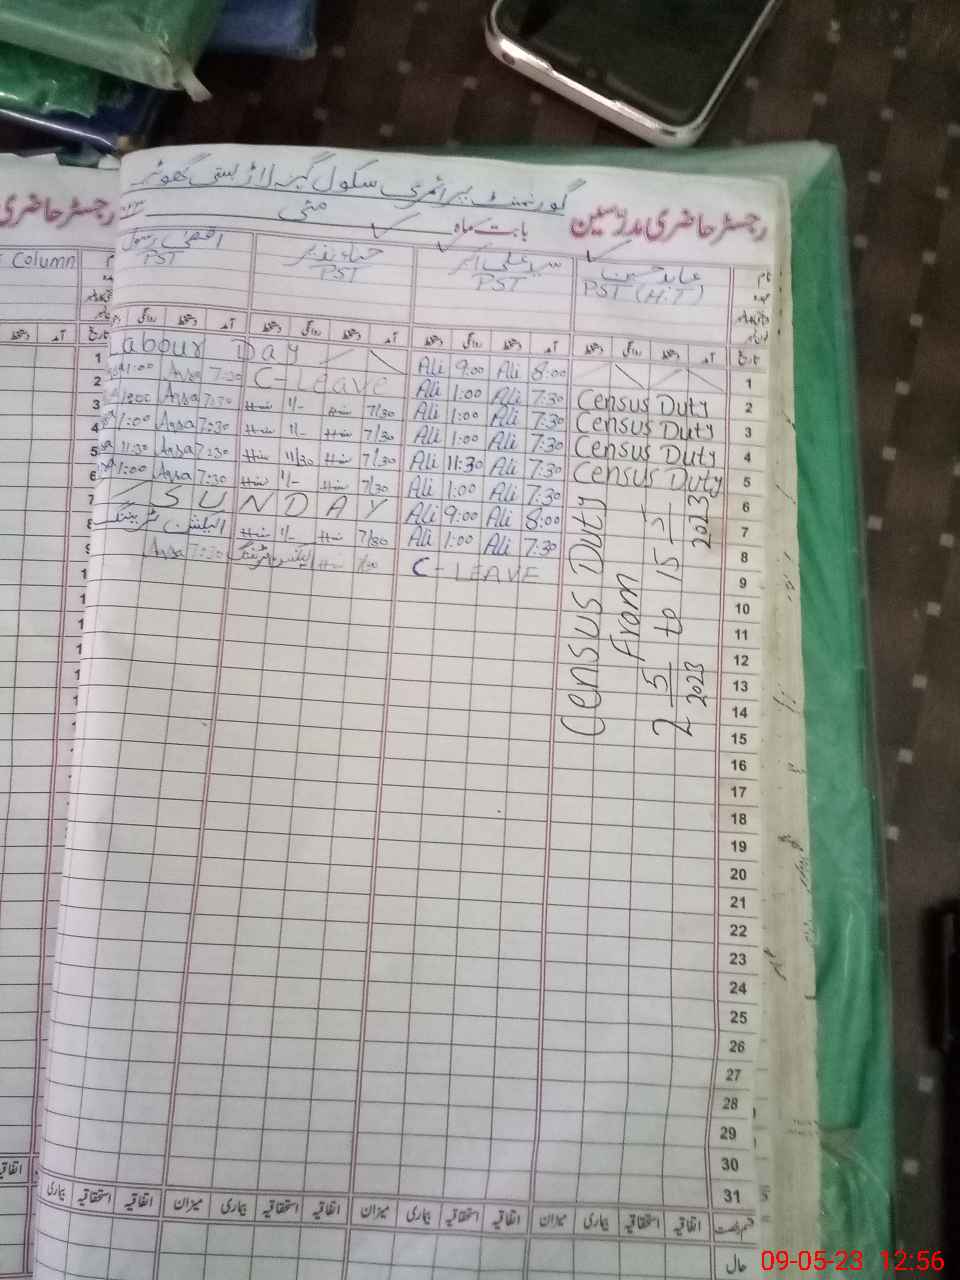 گورنمنٹ پرائمری سکول گہنہ لاڑ بستی گھوٹہ
رجسٹر حاضری مدرسین بابت ماہ مئی
رجسٹر حاضری
عابد حسین سید علی اکبر حناء نذیر اقصیٰ رسول
PST (H.T) PST PST PST
Column
نام
عہدہ
تاریخ آمد دستخط روانگی دستخط آمد دستخط روانگی دستخط آمد دستخط روانگی دستخط آمد دستخط روانگی
Labour Day Ali 9:00 Ali 8:00 1
1:00 Aqsa 7:30 C-LEAVE Ali 1:00 Ali 7:30 Census Duty 2
Aqsa 7:30 1/- 7/30 Ali 1:00 Ali 7:30 Census Duty 3
1:00 Aqsa 7:30 1/- 7/30 Ali 1:00 Ali 7:30 Census Duty 4
11:30 Aqsa 7:30 11/30 7/30 Ali 11:30 Ali 7:30 Census Duty 5
1:00 Aqsa 7:30 1/- 7/30 Ali 1:00 Ali 7:30 6
SUNDAY Ali 9:00 Ali 8:00 7
الیکشن ٹریننگ 1/- 7/30 Ali 1:00 Ali 7:30 8
Aqsa 7:30 الیکشن ٹریننگ 7/30 C-LEAVE 9
Census Duty
From
2-5-2023 to 15-5-2023
10
11
12
13
14
15
16
17
18
19
20
21
22
23
24
25
26
27
28
29
30
31
قسم رخصت اتفاقیہ استحقاقیہ بیماری میزان اتفاقیہ استحقاقیہ بیماری میزان اتفاقیہ استحقاقیہ بیماری میزان اتفاقیہ استحقاقیہ بیماری
حال
09-05-23 12:56